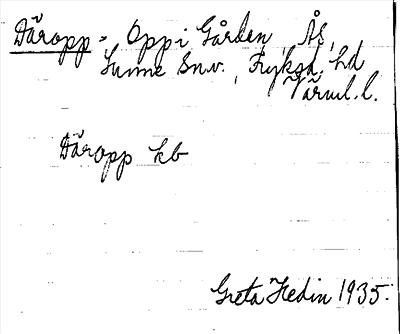 Däropp = Oppi Gården, Ås,
Sunne sn.v., Fryksd. hd
Värml. l.
Däropp kb
Greta Hedin 1935.